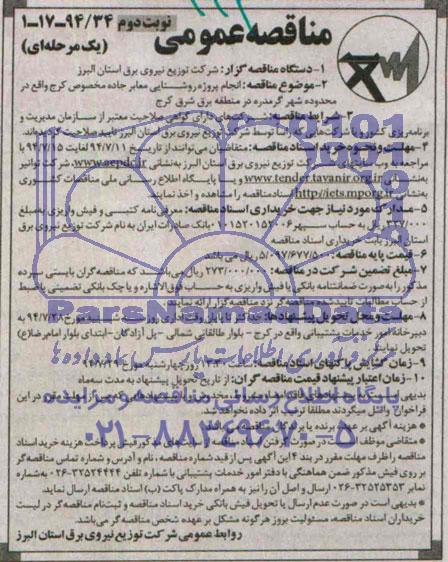 نوبت دوم ۹۴/۳۴-۱۷-۱
مناقصه عمومی
(یک مرحله‌ای)
۱-دستگاه مناقصه گزار: شرکت توزیع نیروی برق استان البرز
۲-موضوع مناقصه: انجام پروژه روشنایی معابر جاده مخصوص کرج واقع در
محدوده شهر گرمدره در منطقه برق شرق کرج
۳-شرایط مناقصه: دارای گواهی صلاحیت معتبر از سازمان مدیریت و
برنامه ریزی کشور و یا شرکت‌هایی که توسط شرکت توزیع نیروی برق استان البرز تایید صلاحیت گردیده‌اند.
۴-مهلت و نحوه خرید اسناد مناقصه: متقاضیان می‌توانند از تاریخ ۹۴/۷/۱۱ لغایت ۹۴/۷/۱۵ با
مراجعه به وب سایت‌های شرکت توزیع نیروی برق استان البرز به نشانی www.aepdc.ir، شرکت توانیر
به نشانی www.tender.tavanir.org.ir و یا پایگاه اطلاع رسانی ملی مناقصات کشوری
به نشانی http://iets.mporg.ir اسناد مناقصه را مشاهده و اخذ نمایند.
۵-مدارک مورد نیاز جهت خریداری اسناد مناقصه: معرفی‌نامه کتبی و فیش واریزی به مبلغ
ریال به حساب سپهر بانک صادرات ایران به نام شرکت توزیع نیروی برق
استان البرز بابت خریداری اسناد مناقصه
۶-قیمت پایه مناقصه: ۵/۰۹۷/۶۷۷/۵۰۰ ریال می باشد
۷-مبلغ تضمین شرکت در مناقصه: ۲۷۳/۰۰۰/۰۰۰ ریال می‌باشد که مناقصه‌گران بایستی سپرده
مذکور را به صورت ضمانتنامه بانکی یا فیش واریزی به حساب فوق الاشاره و یا چک بانکی تضمینی یا ضبط
از حساب مطالبات تایید شده مناقصه‌گر نزد مناقصه گزار ارائه نمایند.
۸-مهلت و محل تحویل پیشنهادها:
دبیرخانه امور خدمات پشتیبانی واقع در کرج - بلوار طالقانی شمالی - پل آزادگان - ابتدای بلوار امام رضا(ع)
تحویل نمایند
۹-زمان گشایش پاکتهای اسناد مناقصه: ساعت روز چهارشنبه مورخ
۱۰-زمان اعتبار پیشنهاد قیمت مناقصه گران: از تاریخ تحویل پیشنهاد به مدت سه‌ماه
فراخوان واصل گردند مطلقا ترتیب اثر داده نخواهد شد.
* هزینه آگهی بر عهده برنده یا برندگان مناقصه می‌باشد.
مناقصه را ظرف مهلت مقرر در بند ۴ این آگهی پس از قید شماره مناقصه، نام و آدرس و شماره تماس مناقصه‌گر
بر روی فیش مذکور ضمن هماهنگی با دفتر امور خدمات پشتیبانی با شماره تلفن ۳۲۵۲۴۴۴۴-۰۲۶ به شماره
نمابر ۳۲۵۲۵۳۵۳-۰۲۶ ارسال و اصل آن را نیز به همراه مدارک پاکت (ب) اسناد مناقصه ارسال نمایند.
* بدیهی است در صورت عدم ارسال یا تحویل فیش بانکی خرید اسناد مناقصه و ثبت‌نام مناقصه‌گر در لیست
خریداران اسناد مناقصه، مسئولیت بروز هرگونه مشکل بر عهده شخص مناقصه گر می‌باشد.
روابط عمومی شرکت توزیع نیروی برق استان البرز
ParsNamadData
پایگاه اطلاع رسانی مناقصه و مزایده
۰۲۱-۸۸۳۴۹۶۷۰-۵